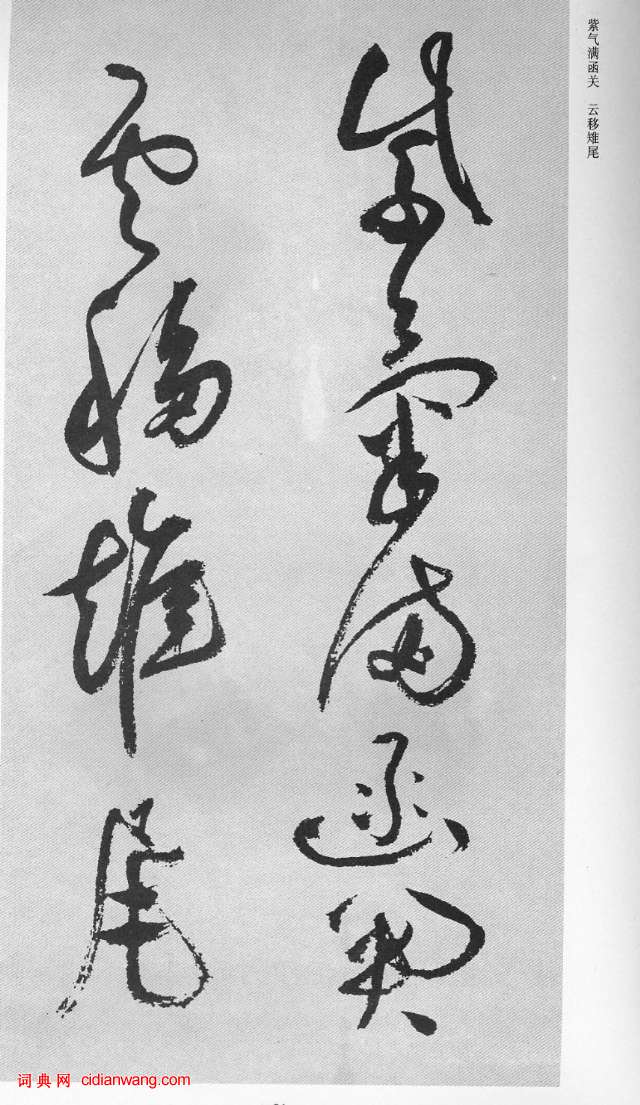 紫气满函关 云移雉尾
紫氣滿函關
雲移雉尾
词典网 cidianwang.com